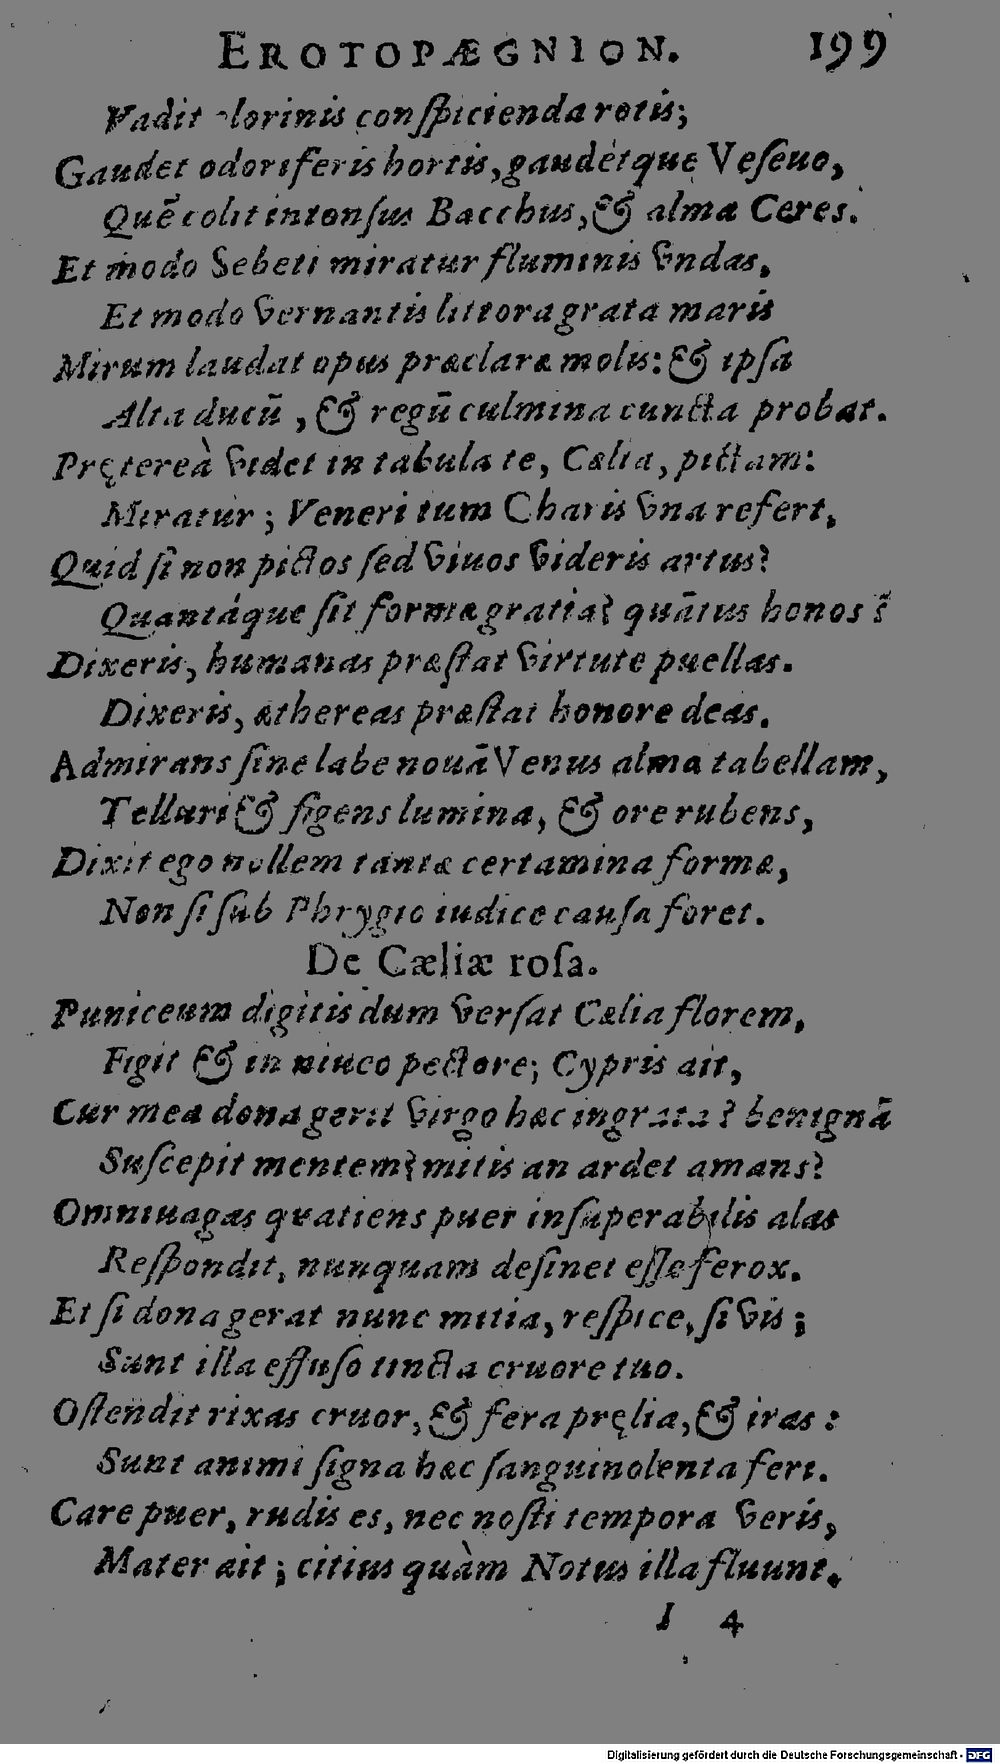 EROTOPÆGNION. 199
Vadit olorinis conſpicienda rotis;
Gaudet odoriferis hortis, gaudétque Veſeuo,
Quē colit intonſus Bacchus, & alma Ceres.
Et modo Sebeti miratur fluminis vndas,
Et modo vernantis littora grata maris
Mirum laudat opus præclaræ molis: & ipſa
Alta ducū, & regū culmina cuncta probat.
Prętereà videt in tabula te, Cælia, pictam:
Miratur; Veneri tum Charis vna refert,
Quid ſi non pictos ſed viuos videris artus?
Quantáque ſit formæ gratia? quātus honos?
Dixeris, humanas præſtat virtute puellas.
Dixeris, æthereas præſtat honore deas.
Admirans ſine labe nouā Venus alma tabellam,
Telluri & figens lumina, & ore rubens,
Dixit ego nollem tantæ certamina formæ,
Non ſi ſub Phrygio iudice cauſa foret.
De Cæliæ roſa.
Puniceum digitis dum verſat Cælia florem,
Figit & in niueo pectore; Cypris ait,
Cur mea dona gerit virgo hæc ingrata? benignā
Suſcepit mentem? mitis an ardet amans?
Omniuagas quatiens puer inſuperabilis alas
Reſpondit, nunquam deſinet eſſe ferox.
Et ſi dona gerat nunc mitia, reſpice, ſi vis;
Sunt illa effuſo tincta cruore tuo.
Oſtendit rixas cruor, & fera pręlia, & iras:
Sunt animi ſigna hæc ſanguinolenta feri.
Care puer, rudis es, nec noſti tempora veris,
Mater ait; citius quàm Notus illa fluunt.
I 4
Digitalisierung gefördert durch die Deutsche Forschungsgemeinschaft - DFG